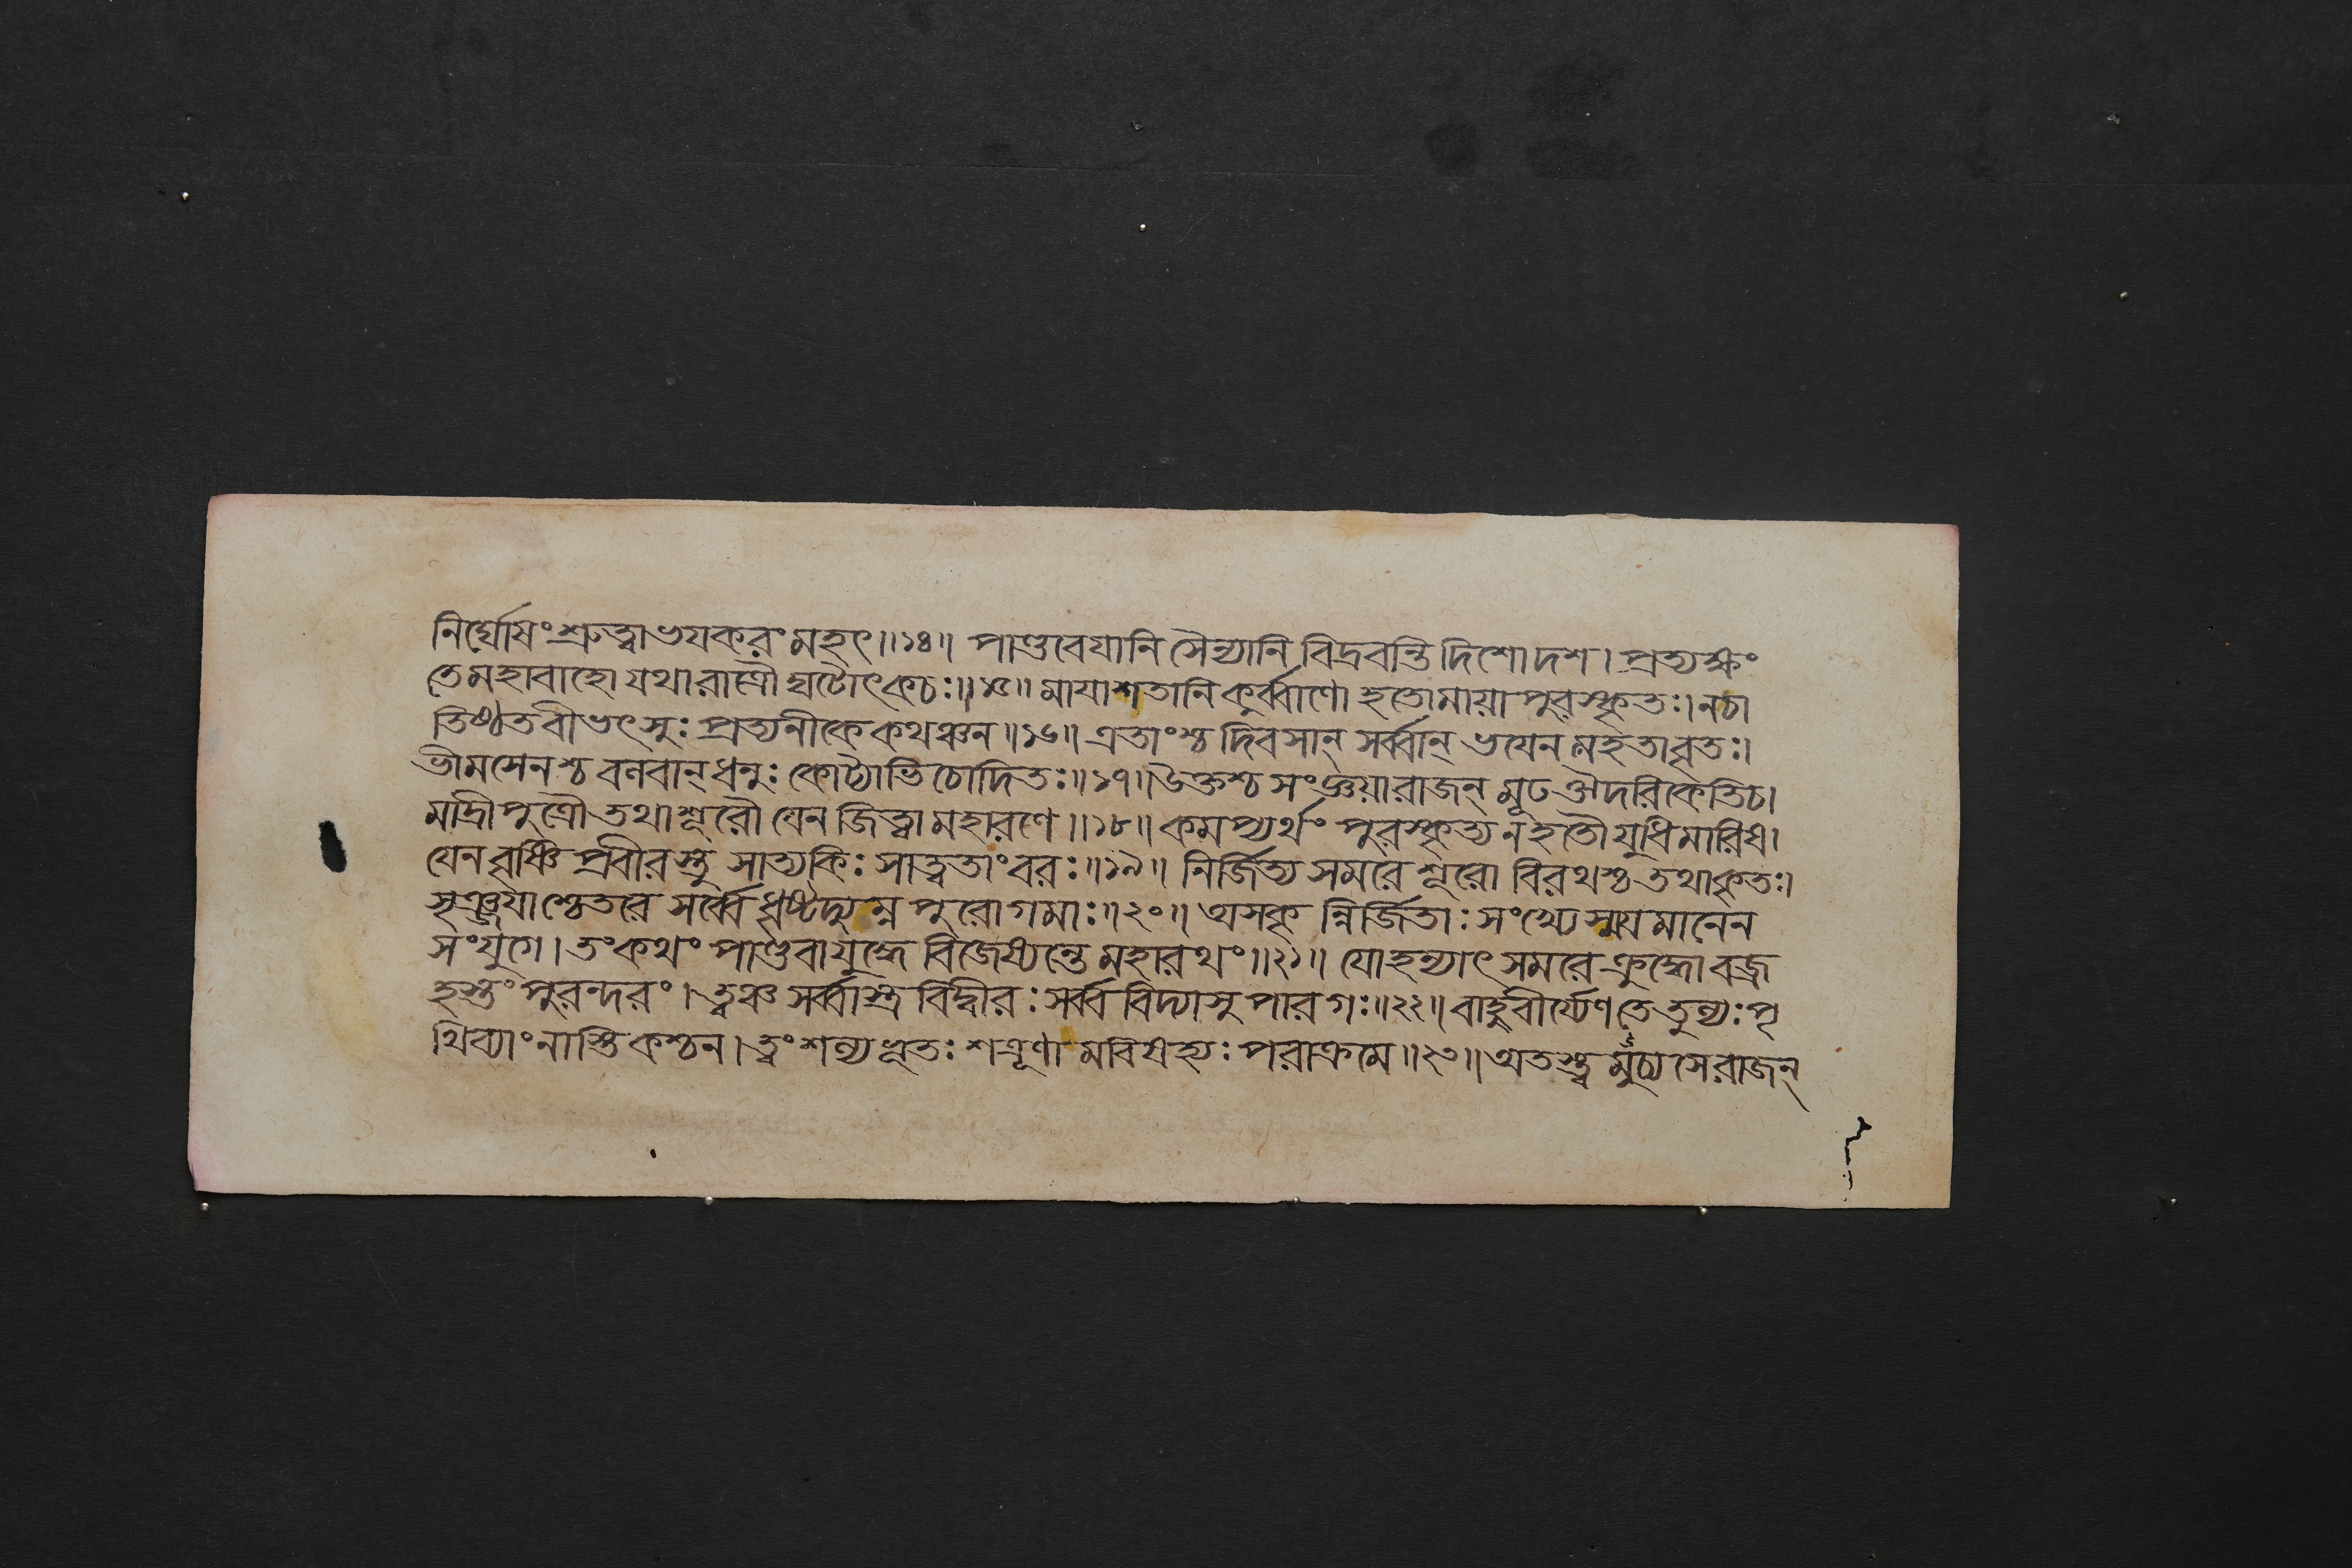 নির্ঘোষং শ্রুত্বা ভয়করং মহৎ॥১৪॥ পাণ্ডবেয়ানি সৈন্যানি বিদ্রবন্তি দিশোদশ। প্রত্যক্ষং
তে মহাবাহো যথা রাত্রৌ ঘটোৎকচঃ॥১৫॥ মায়াশতানি কুর্ব্বাণো হতোমায়া পুরস্কৃতঃ। নচা
তিষ্ঠত বীভৎসুঃ প্রত্যনীকে কথঞ্চন॥১৬॥ এতাংশ্চ দিবসান্ সর্ব্বান্ ভয়েন মহতাবৃতঃ।
ভীমসেনশ্চ বলবান্ ধনুঃ কোট্যাভিচোদিতঃ॥১৭॥ উক্তশ্চ সংজ্ঞয়ারাজন্ মূঢ ঔদরিকেতিচ।
মাদ্রীপুত্রৌ তথাশূরৌ যেন জিত্বা মহারণে॥১৮॥ কমপ্যর্থং পুরস্কৃত্য ন হতৌ যুধিমারিষ।
যেন বৃষ্ণি প্রবীরস্তু সাত্যকিঃ সাত্বতাং বরঃ॥১৯॥ নির্জিত্য সমরে শূরো বিরথশ্চ তথাকৃতঃ।
সৃঞ্জয়াশ্চেতরে সর্ব্বে ধৃষ্টদ্যুম্ন পুরোগমাঃ॥২০॥ অসকৃ ন্নির্জিতাঃ সংখ্যে স্ময়মানেন
সংযুগে। তং কথং পাণ্ডবা যুদ্ধে বিজেষ্যন্তে মহারথং॥২১॥ যোহন্যাৎ সমরে ক্রুদ্ধো বজ্র
হস্তং পুরন্দরং। ত্বঞ্চ সর্ব্বাস্ত্র বিদ্বীরঃ সর্ব্ব বিদ্যাসু পারগঃ॥২২॥ বাহুবীর্য্যেণ তে তুল্যঃ পৃ
থিব্যাং নাস্তি কশ্চন। ত্বং শল্যভূতঃ শত্রূণা মবিষহ্যঃ পরাক্রমে॥২৩॥ অতস্ত্ব মুচ্যসে রাজন্